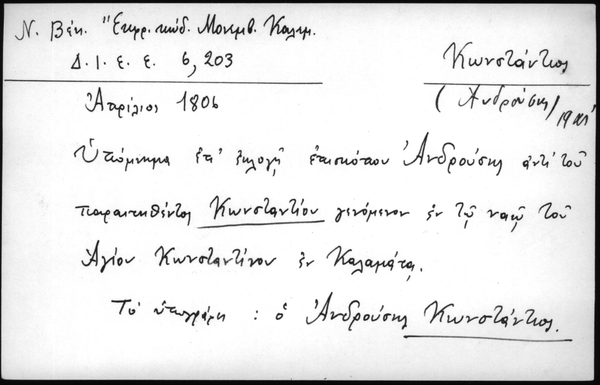 Ν. Βέη. "Εκκρ. κώδ. Μονεμβ. Καλαμ.
Δ. Ι. Ε. Ε. 6, 203
Κωνστάντιος
(Ἀνδρούσης) 19 αι'
Ἀπρίλιος 1806
Ὑπόμνημα ἐπ' ἐκλογῇ ἐπισκόπου Ἀνδρούσης ἀντὶ τοῦ
παραιτηθέντος Κωνσταντίου γενόμενον ἐν τῷ ναῷ τοῦ
Ἁγίου Κωνσταντίνου ἐν Καλαμάτᾳ.
Τὸ ὑπογράφει : ὁ Ἀνδρούσης Κωνστάντιος.